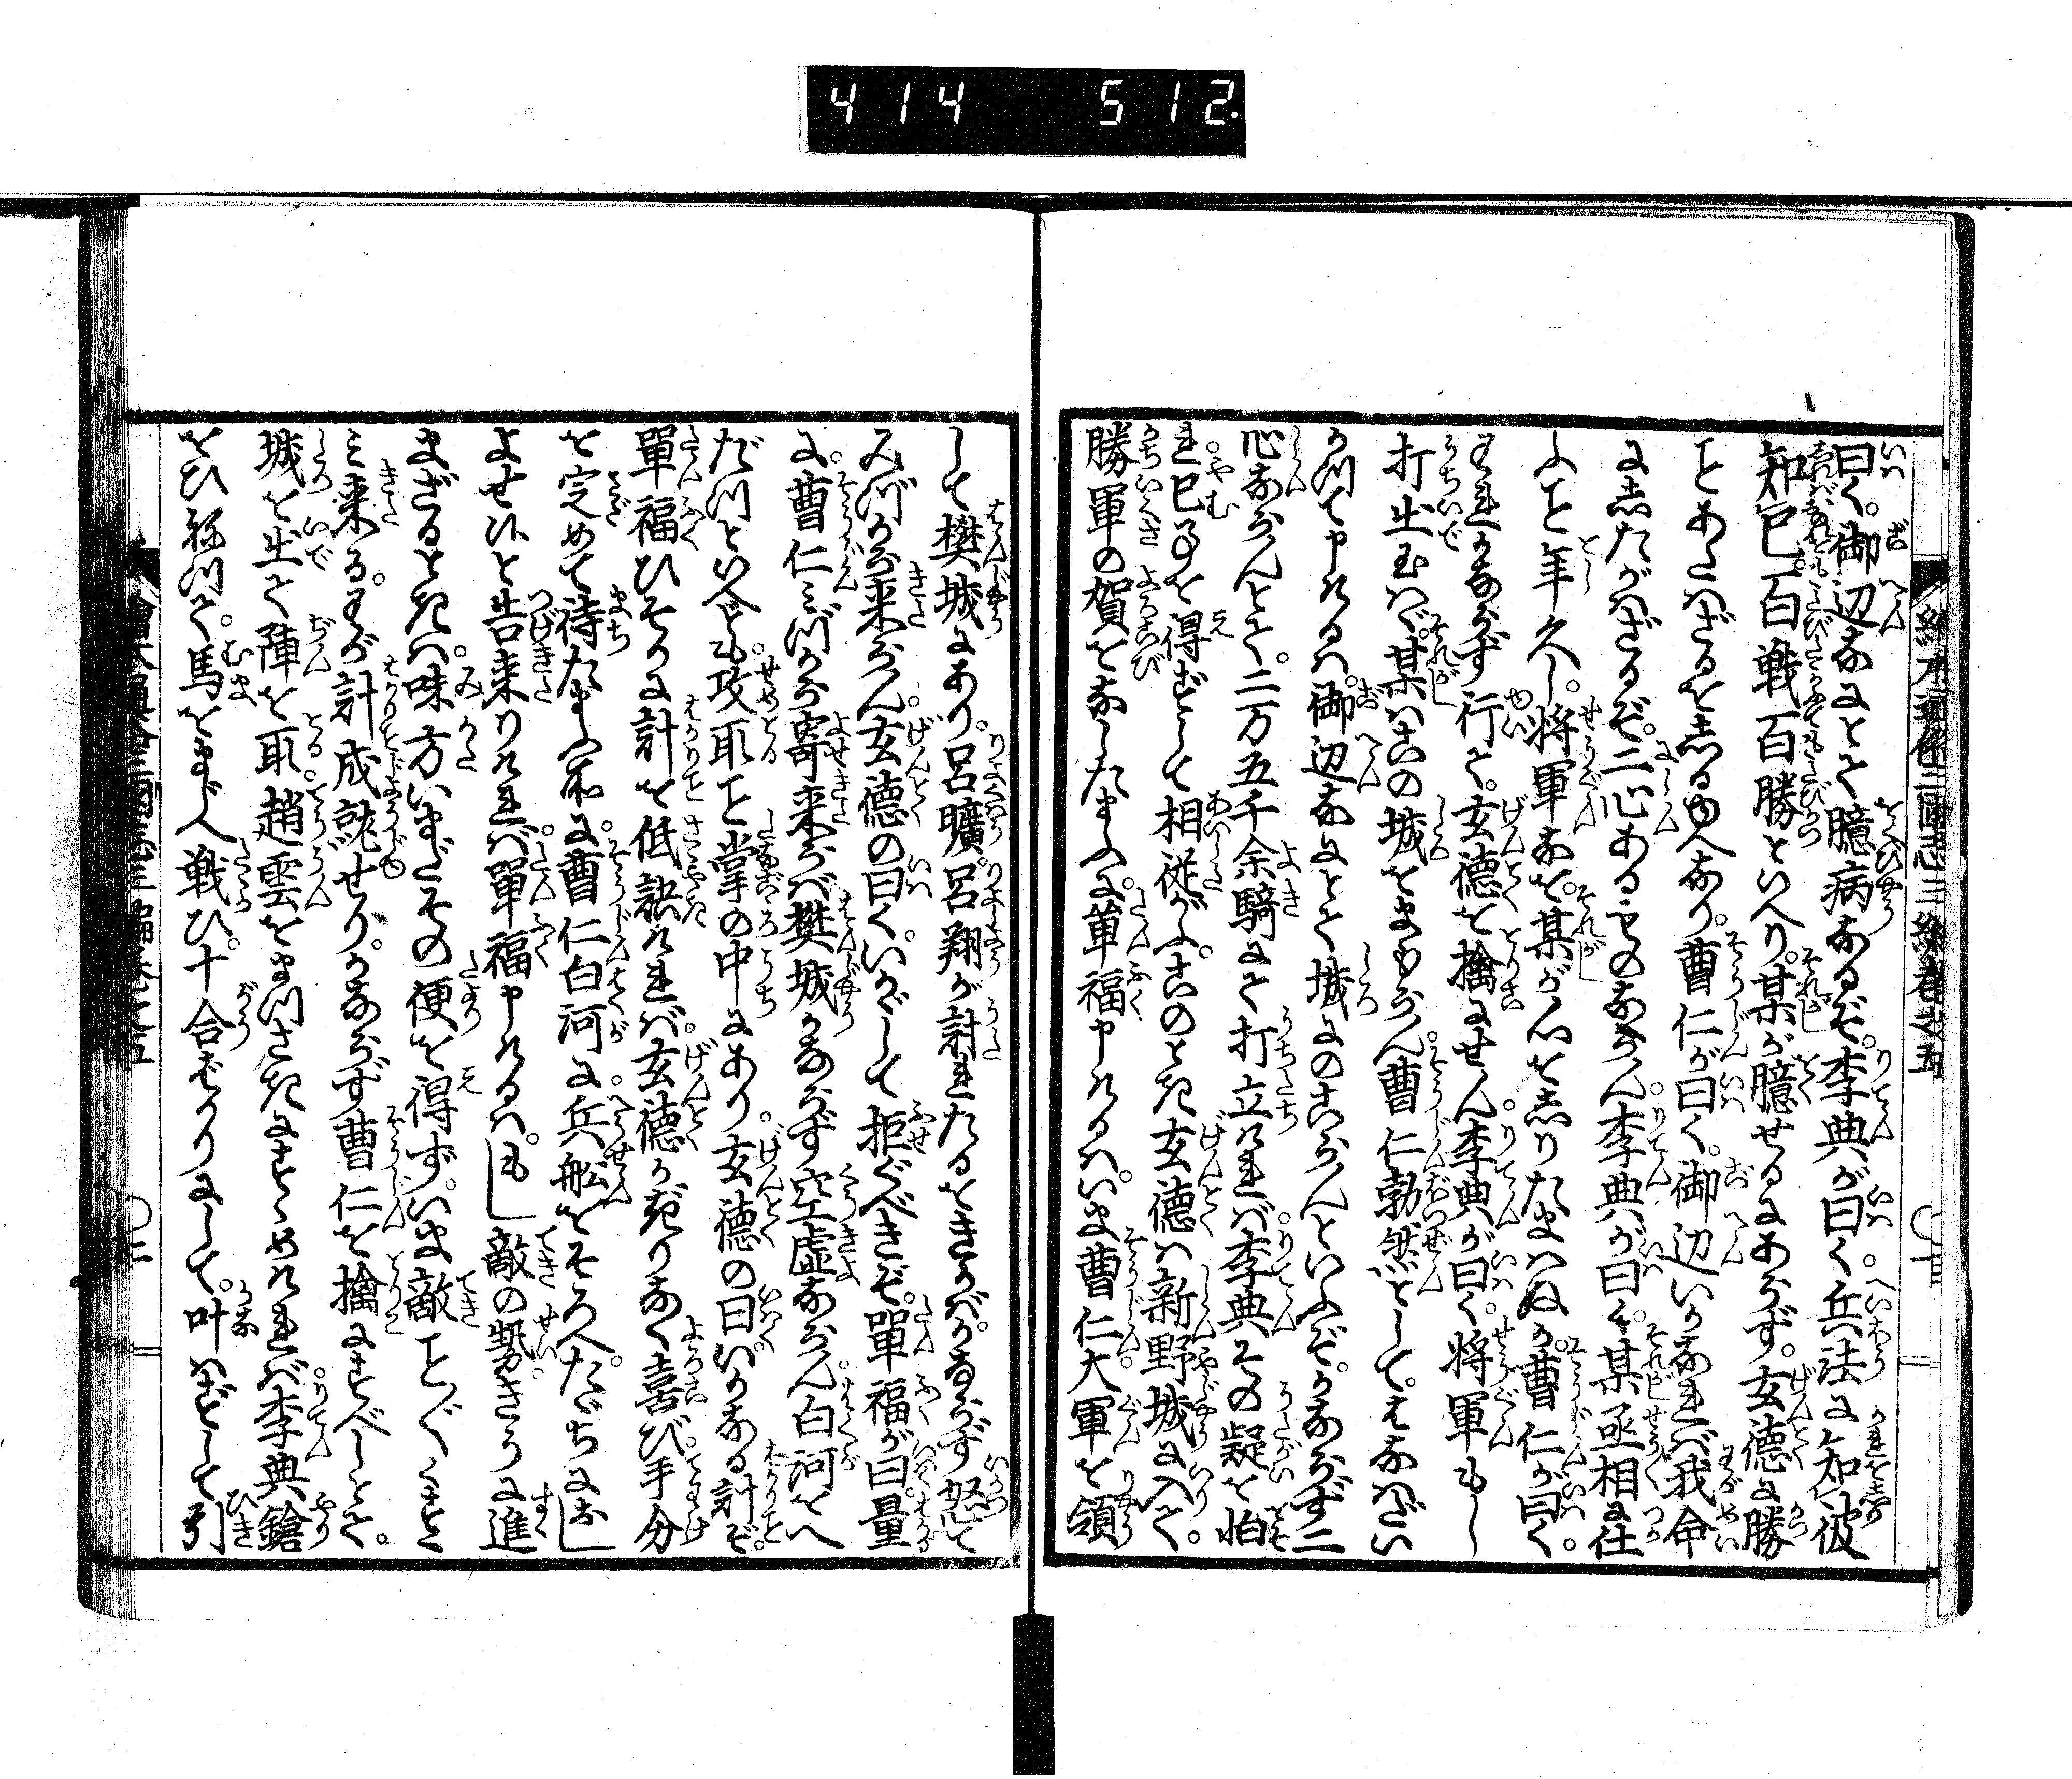 414 512
曰く。御辺なにとて臆病なるぞ。李典が曰く。兵法に知彼
知已。百戦百勝といへり。某が臆せるにあらず。玄徳に勝
ことあたはざるをしるゆへなり。曹仁が曰く。御辺いかなれば我命
にしたがはざるぞ。二心あるものならん。李典が曰く。某丞相に仕
ふこと年久し。将軍なを。某が心をしりたまはぬか。曹仁が曰く。
われかならず行て。玄徳を擒にせん。李典が曰く。将軍もし
打出玉はゞ。某はこの城をまもらん。曹仁勃然として。はなはだい
かつて申けるは。御辺なにとて城にのこらんといふぞ。かならず二
心ならんとて。二万五千余騎にて打立ければ。李典その疑を怕
れ。已ことを得ずして相従がふ。このとき玄徳は新野城に入て。
勝軍の賀をなしたまふに。單福申けるは。いま曹仁大軍を領
して樊城にあり。呂曠。呂翔が討れたるをきかば。かならず怒て
みづから来らん。玄徳の曰く。いかゞして拒ぐべきぞ。單福が曰。量
に。曹仁みづから寄来らば樊城かならず空虚ならん。白河をへ
だつといへども。攻取こと掌の中にあり。玄徳の曰。いかなる計ぞ。
單福ひそかに計を低訴ければ。玄徳かぎりなく喜び。手分
を定めて待たまふ所に。曹仁白河に兵舩をそろへ。たゞちにおし
よせ候と告来りければ。單福申けるは。もし敵の勢きうに進
まざるときは。味方いまだその便を得ず。いま敵こと〴〵くすゝ
み来る。わが計成就せり。かならず曹仁を擒にすべしとて。
城を出て陣を取。趙雲をまつさきにすゝめければ。李典鎗
をひねつて。馬をまじへ戦ひ。十合ばかりにして。叶はずして引